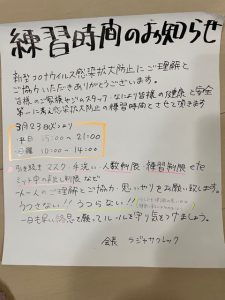 練習時間のお知らせ
新型コロナウイルス感染拡大防止にご理解と
ご協力いただきありがとうございます。
皆様のご家族やジムのスタッフ、なにより皆様の健康と安全
第一に考え感染拡大防止の練習時間とさせて頂きます
3月23日
平日 15:00～21:00
日曜 10:00～14:00
引き続き マスク・手洗い・人数制限・練習制限 etc
ミット
一人一人のご理解とご協力・思いやりをお願い致します。
うつさない!! うつらない!!
一日も早い終息を願ってルールを守り
会長